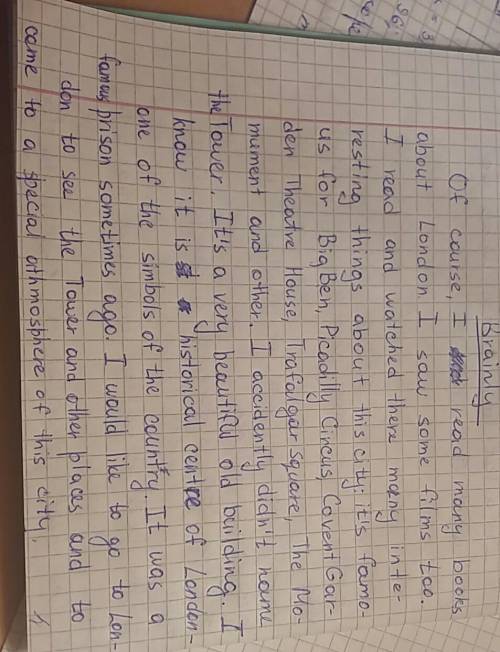 Brainly
Of course, I read many books
about London. I saw some films too.
I read and watched there many inte-
resting things about this city: it's famo-
us for BigBen, Picadilly Circus, Covent Gar-
den Theatre House, Trafalgar Square, The Mo-
nument and other. I accidently didn't name
the Tower. It's a very beautiful old building. I
know it is historical centre of London-
one of the simbols of the country. It was a
famus prison sometimes ago. I would like to go to Lon-
don to see the Tower and other places and to
came to a special athmosphere of this city.